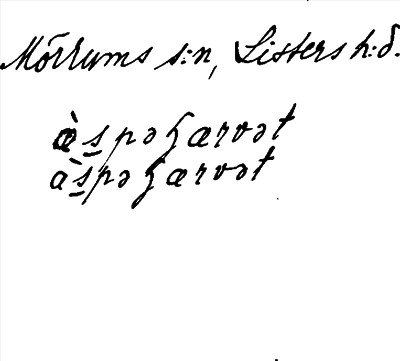 Mörrums s:n, Listers h:d.
æ̀s̲pəꞕærvət
às̲pəꞕærvət